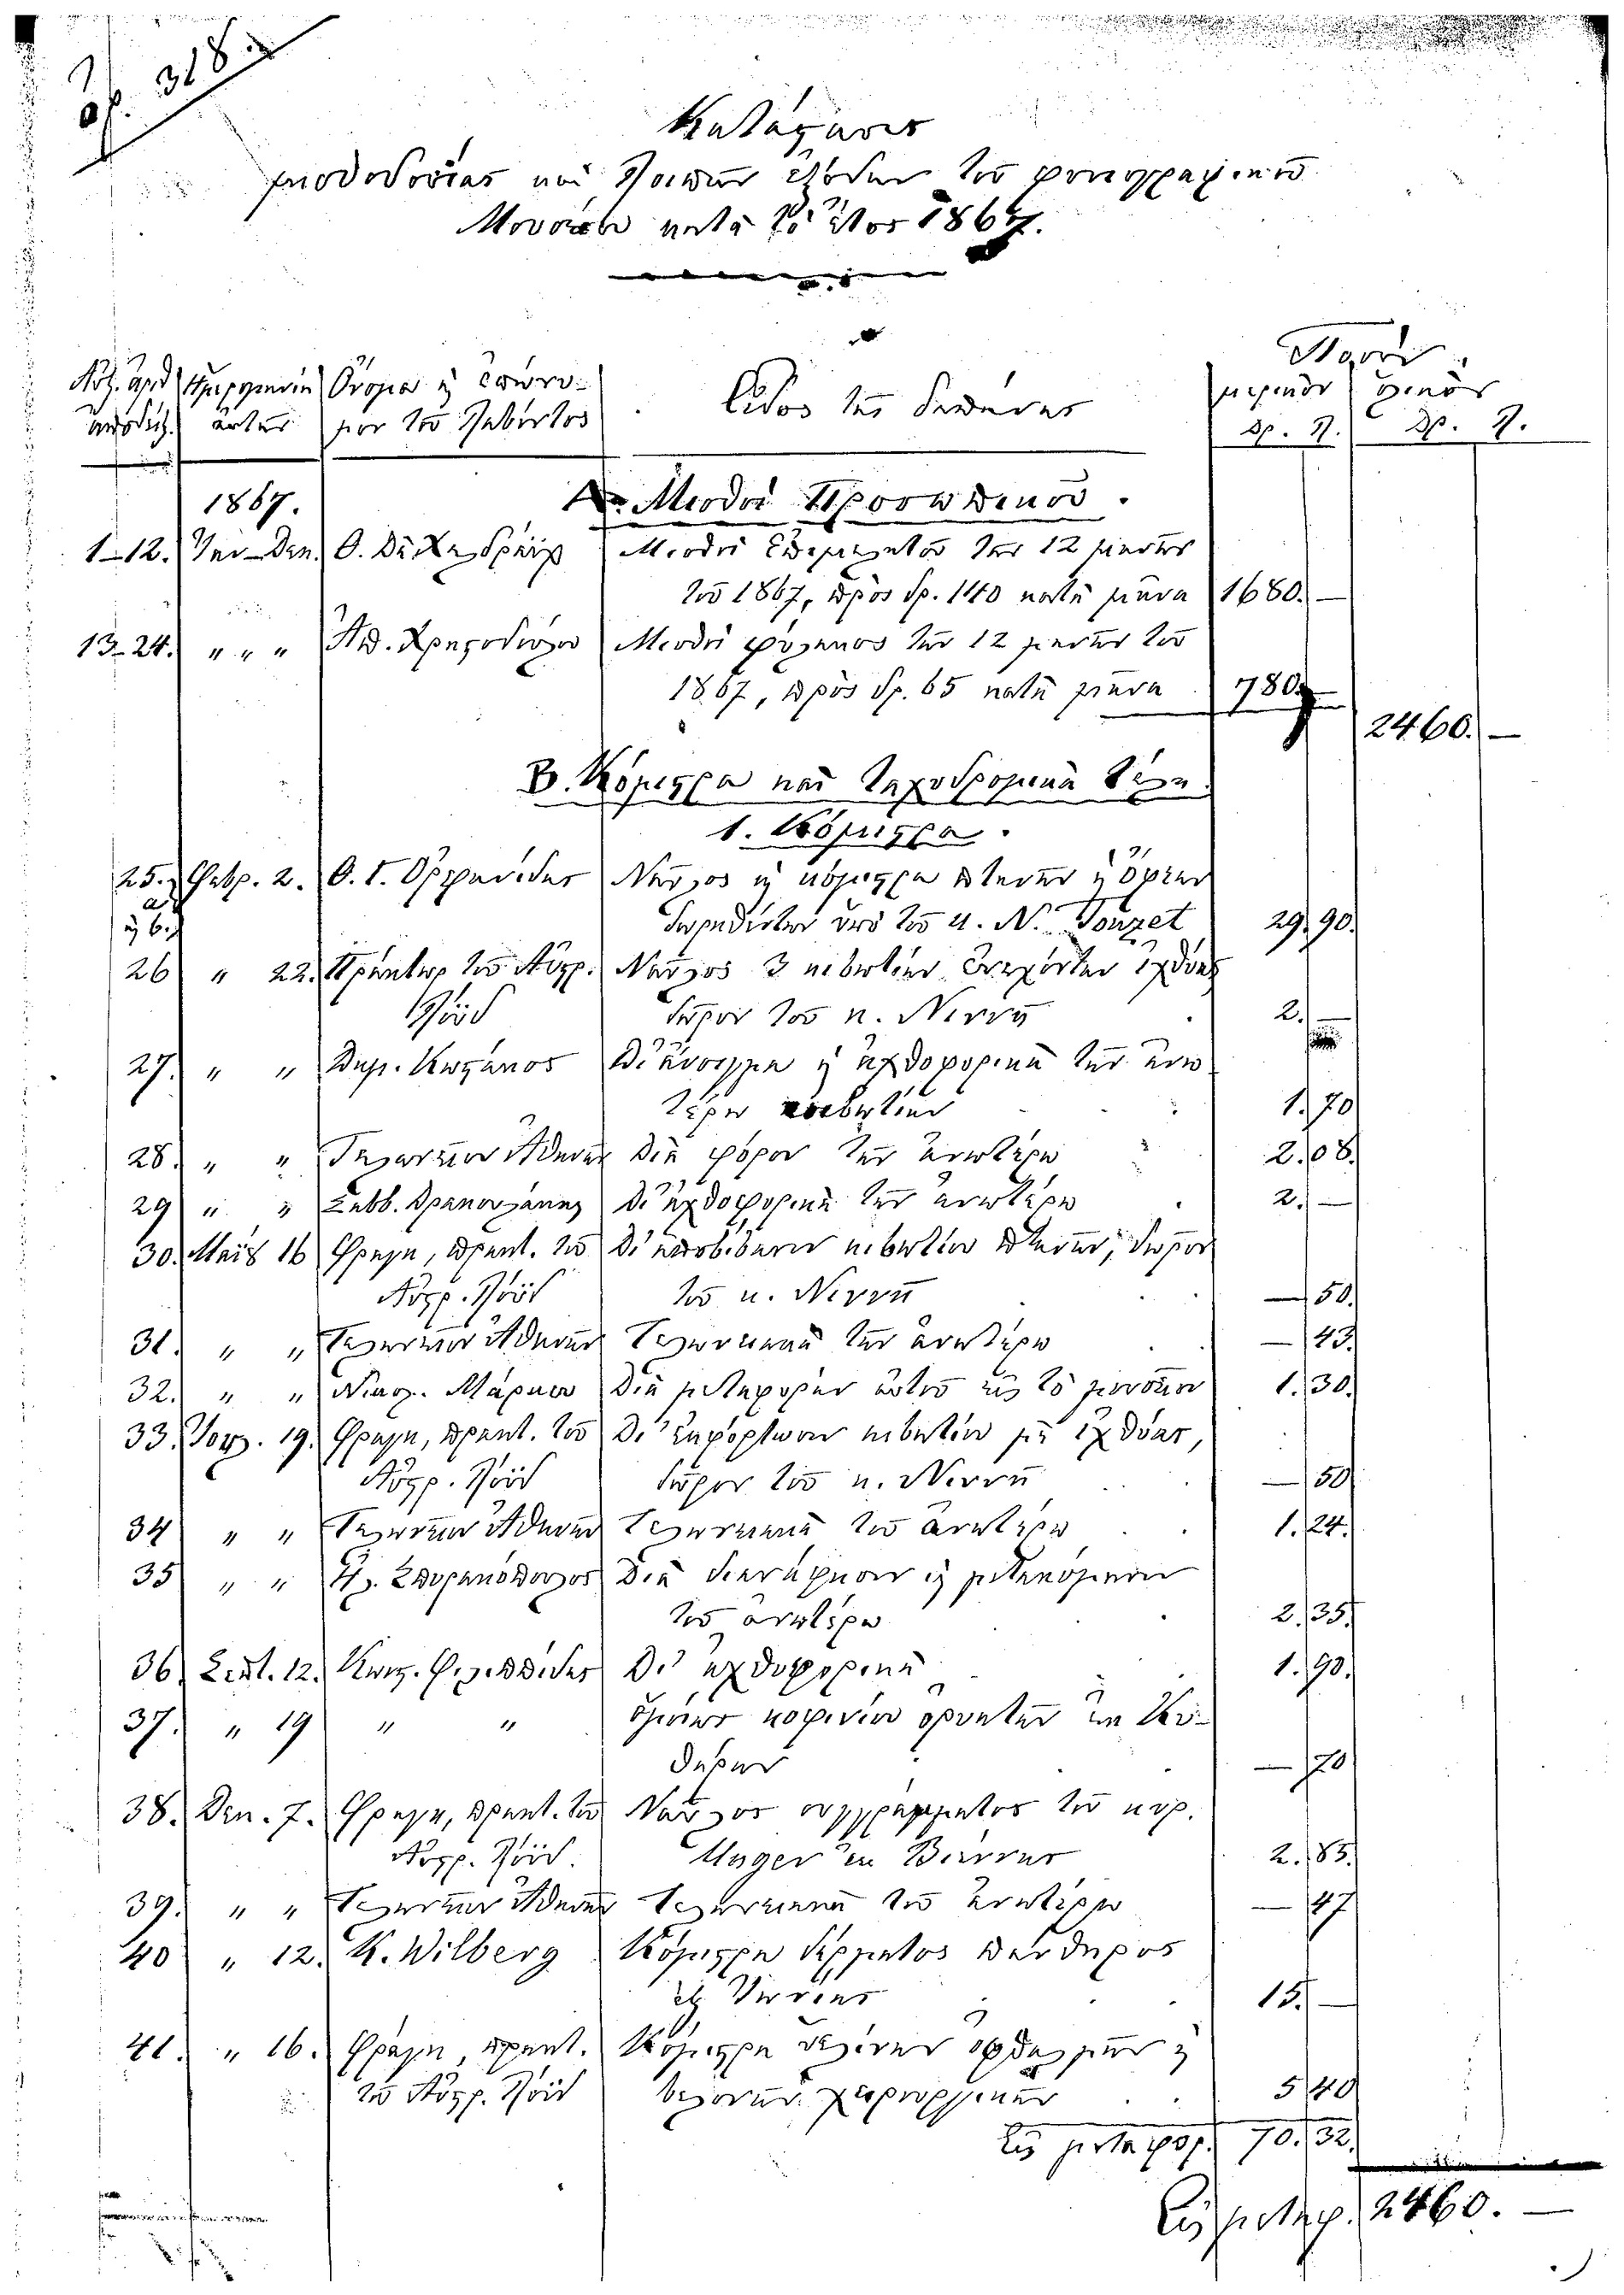 ἀρ. 318
Κατάστασις
μισθοδοσίας καὶ λοιπῶν ἐξόδων τοῦ φυσιογραφικοῦ
Μουσείου κατὰ τὸ ἔτος 1867.
Ποσὸν
Αὔξ. ἀρθ. Ἡμερομηνία Ὄνομα ἢ ἐπώνυ- Εἶδος τῆς δαπάνης μερικὸν ὁλικὸν
ἀποδείξ. αὐτῆς μον τοῦ λαβόντος δρ. λ. δρ. λ.
1867. Α. Μισθοὶ Προσωπικοῦ.
1-12. Ἰαν-Δεκ. Θ. Δὲ Χελδράϊχ Μισθοὶ ἐπιμελητοῦ τῶν 12 μηνῶν
τοῦ 1867, πρὸς δρ. 140 κατὰ μῆνα 1680. —
13-24. " " " Μισθοὶ φύλακος τῶν 12 μηνῶν τοῦ
1867, πρὸς δρ. 65 κατὰ μῆνα 780. —
2460. —
Β. Κόμιστρα καὶ ταχυδρομικὰ τέλη.
1. Κόμιστρα.
25. Φεβρ. 2. Θ. Γ. Ὀρφανίδης Ναῦλος κ κόμιστρα πτηνῶν κ ὄφεων
α κ β. δωρηθέντων ὑπὸ τοῦ κ. N. Gouzet 29. 90.
26 " 22. Πράκτωρ τοῦ Αὐστρ. Ναῦλος 3 κιβωτίων ἐνεχόντων ἰχθύας
Λόϋδ δῶρον τοῦ κ. Νιννῆ 2. —
27. " " Δημ. Κωτζάκος Δι' ἄνοιγμα κ ἀχθοφορικὰ τῶν ἀνω
τέρω κιβωτίων 1. 70
28. " " Τελωνεῖον Ἀθηνῶν Διὰ φόρον τῶν ἀνωτέρω 2. 08.
29 " " Σαββ. Δρακουλάκης Δι' ἀχθοφορικὰ τῶν ἀνωτέρω 2. —
30. Μαΐου 16 Φραγκ, πρακτ. τοῦ Δι' ἀποβίβασιν κιβωτίου πτηνῶν, δῶρον
Αὐστρ. Λόϋδ τοῦ κ. Νιννῆ — 50.
31. " " Τελωνεῖον Ἀθηνῶν Τελωνιακὰ τῶν ἀνωτέρω — 43.
32. " " Νικολ. Μάρκου Διὰ μεταφορὰν αὐτοῦ εἰς τὸ μουσεῖον 1. 30.
33. Ἰουλ. 19. Φραγκ, πρακτ. τοῦ Δι' ἐκφόρτωσιν κιβωτίου μὲ ἰχθύας,
Αὐστρ. Λόϋδ δῶρον τοῦ κ. Νιννῆ — 50
34 " " Τελωνεῖον Ἀθηνῶν Τελωνιακὰ τοῦ ἀνωτέρω 1. 24.
35 " " Διὰ διεκπεραίωσιν κ μετακόμισιν
τοῦ ἀνωτέρω 2. 35.
36. Σεπτ. 12. Κων. Φιλιππίδης Δι' ἀχθοφορικὰ 1. 90.
37. " 19 " " ὁμοίως κοφινίου ὀρυκτῶν ἐκ Κυ-
θήρων — 70
38. Δεκ. 7. Φραγκ, πρακτ. τοῦ Ναῦλος συγγράμματος τοῦ κυρ.
Αὐστρ. Λόϋδ. Unger ἐκ Βιέννης 2. 83.
39. " " Τελωνεῖον Ἀθηνῶν Τελωνιακὰ τοῦ ἀνωτέρω — 47
40 " 12. K. Wilberg Κόμιστρα δέρματος πάνθηρος
ἐξ 15. —
41. " 16. Φραγκ, πρακτ. Κόμιστρα ὑελίνων ὀφθαλμῶν κ
τοῦ Αὐστρ. Λόϋδ βελονῶν χειρουργικῶν 5 40
Εἰς μεταφορ. 70. 32.
Εἰς μεταφ. 2460. —